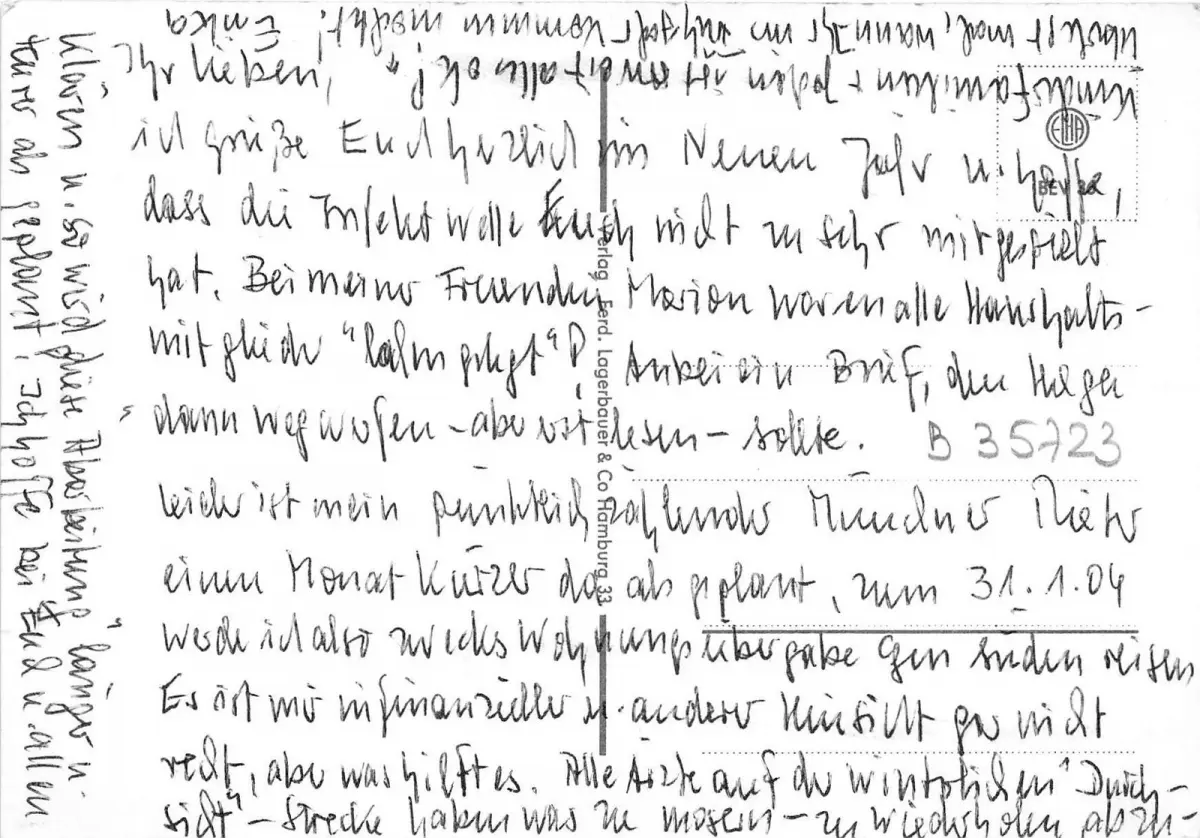 Ihr Lieben,
ich grüße Euch herzlich im Neuen Jahr u. hoffe,
dass die Infektwelle Euch nicht zu sehr mitgespielt
hat. Bei meiner Freundin Marion waren alle Haushalts-
mitglieder "lahmgelegt"! Anbei ein Brief, den Holger
dann wegwerfen - aber erst lesen - sollte.
Leider ist mein pünktlich zahlender Münchner Mieter
einen Monat kürzer da als geplant, zum 31.1.04
werde ich also zwecks Wohnungsübergabe gen Süden reisen
Es ist mir in finanzieller u. anderer Hinsicht gar nicht
recht, aber was hilft es. Alle Ärzte auf der winterlichen "Durch-
sicht" - Strecke haben was zu mosern - zu wiederholen abzu-
klären u. so wird diese "Abarbeitung" länger u.
teurer als geplant! Ich hoffe bei Euch u. allen
Kindsfamilien + Jochen ist soweit "alles ok"!
mal, wann Ihr im kommen möchtet! Erika
EMA
BEV
B 35723
Verlag Ferd. Lagerbauer & Co Hamburg 33